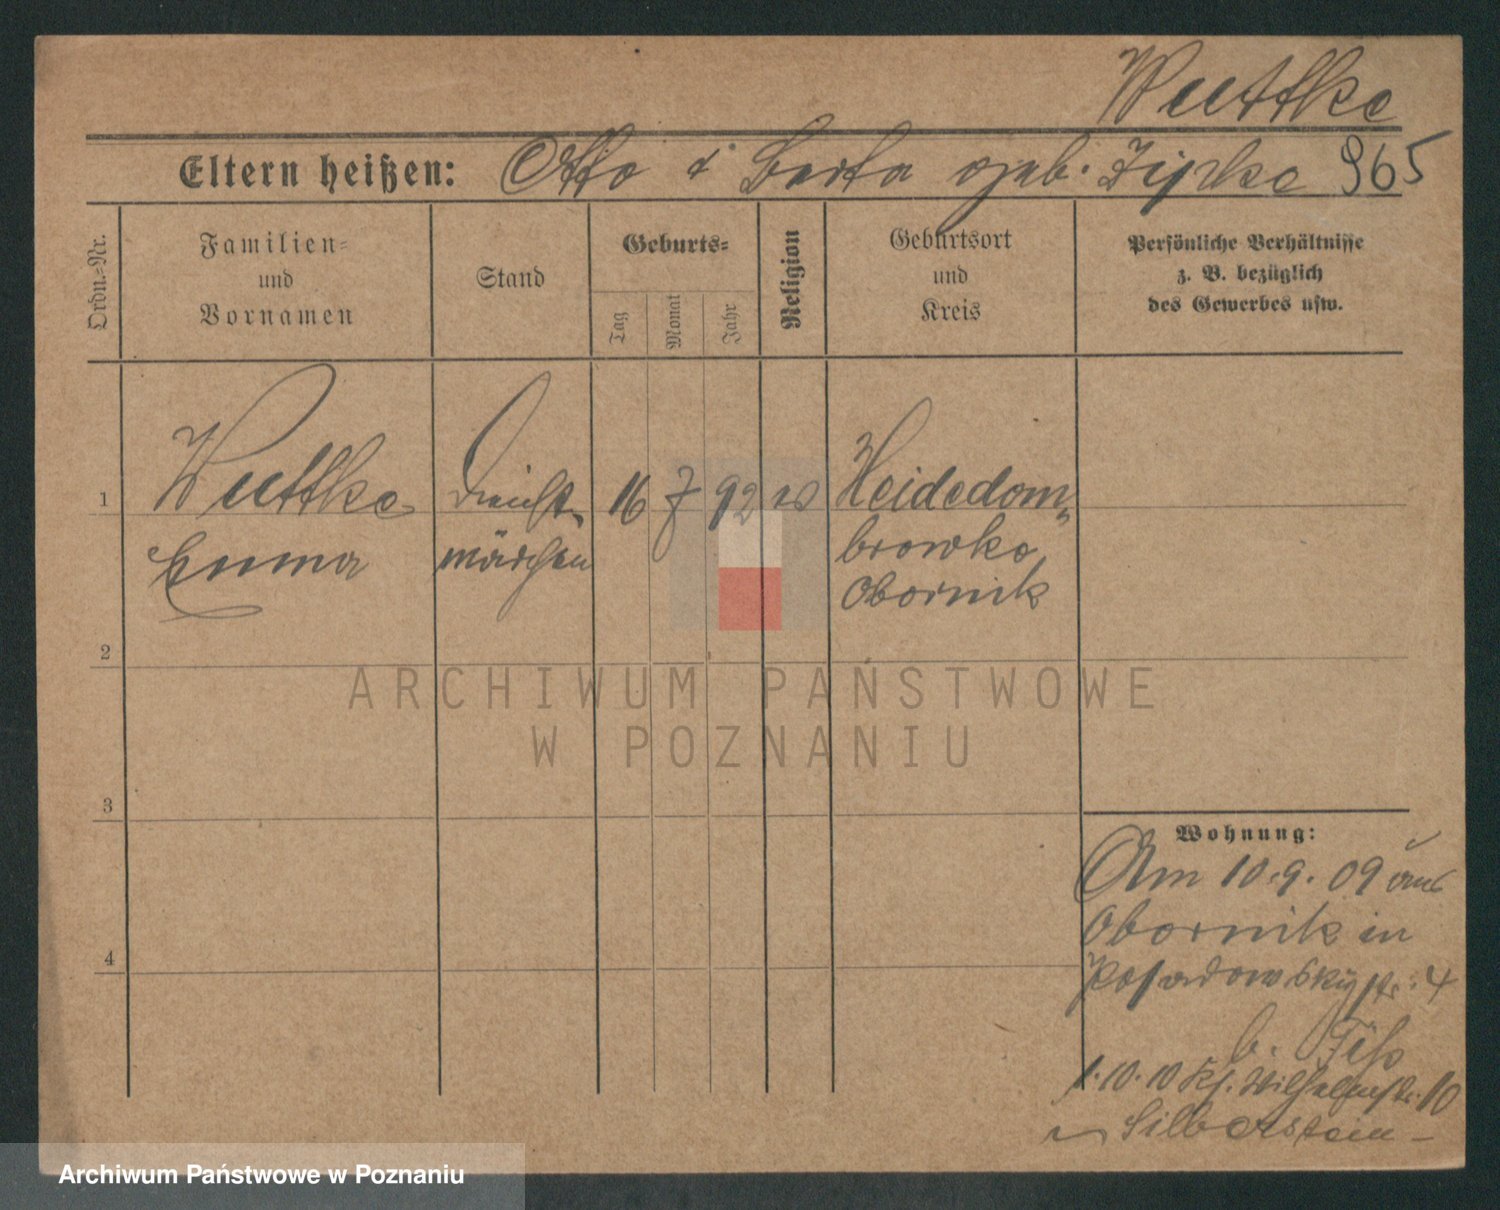 Wuttke
Eltern heißen: Otto & Berta geb. Zipke 965
Ordn.=Nr.
Familien=
und
Vornamen
Stand
Geburts=
Tag
Monat
Jahr
Religion
Geburtsort
und
Kreis
Persönliche Verhältnisse
z. B. bezüglich
des Gewerbes usw.
1
Wuttke
Emma
Dienst-
mädchen
16 7 92 ev
Heidedom-
browka
Obornik
2
ARCHIWUM PAŃSTWOWE
W POZNANIU
3
Wohnung:
Am 10.9.09 aus
Obornik in
Posadowskystr. 4
4
b.
1.10.10 Wilhelmstr. 10
Silberstein
Archiwum Państwowe w Poznaniu